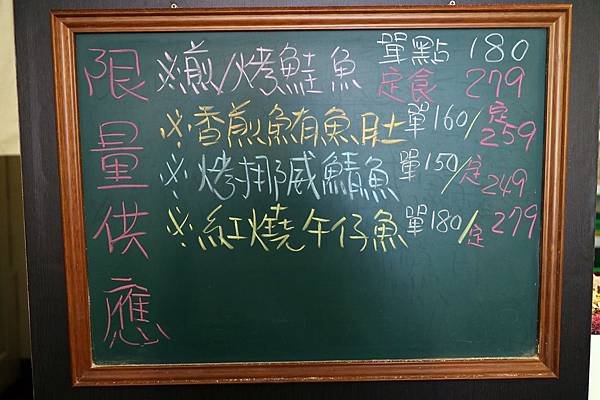 限量供應
※煎/烤鮭魚 單點 180
定食 279
※香煎鮪魚肚 單160/定259
※烤挪威鯖魚 單150/定249
※紅燒午仔魚 單180/定279